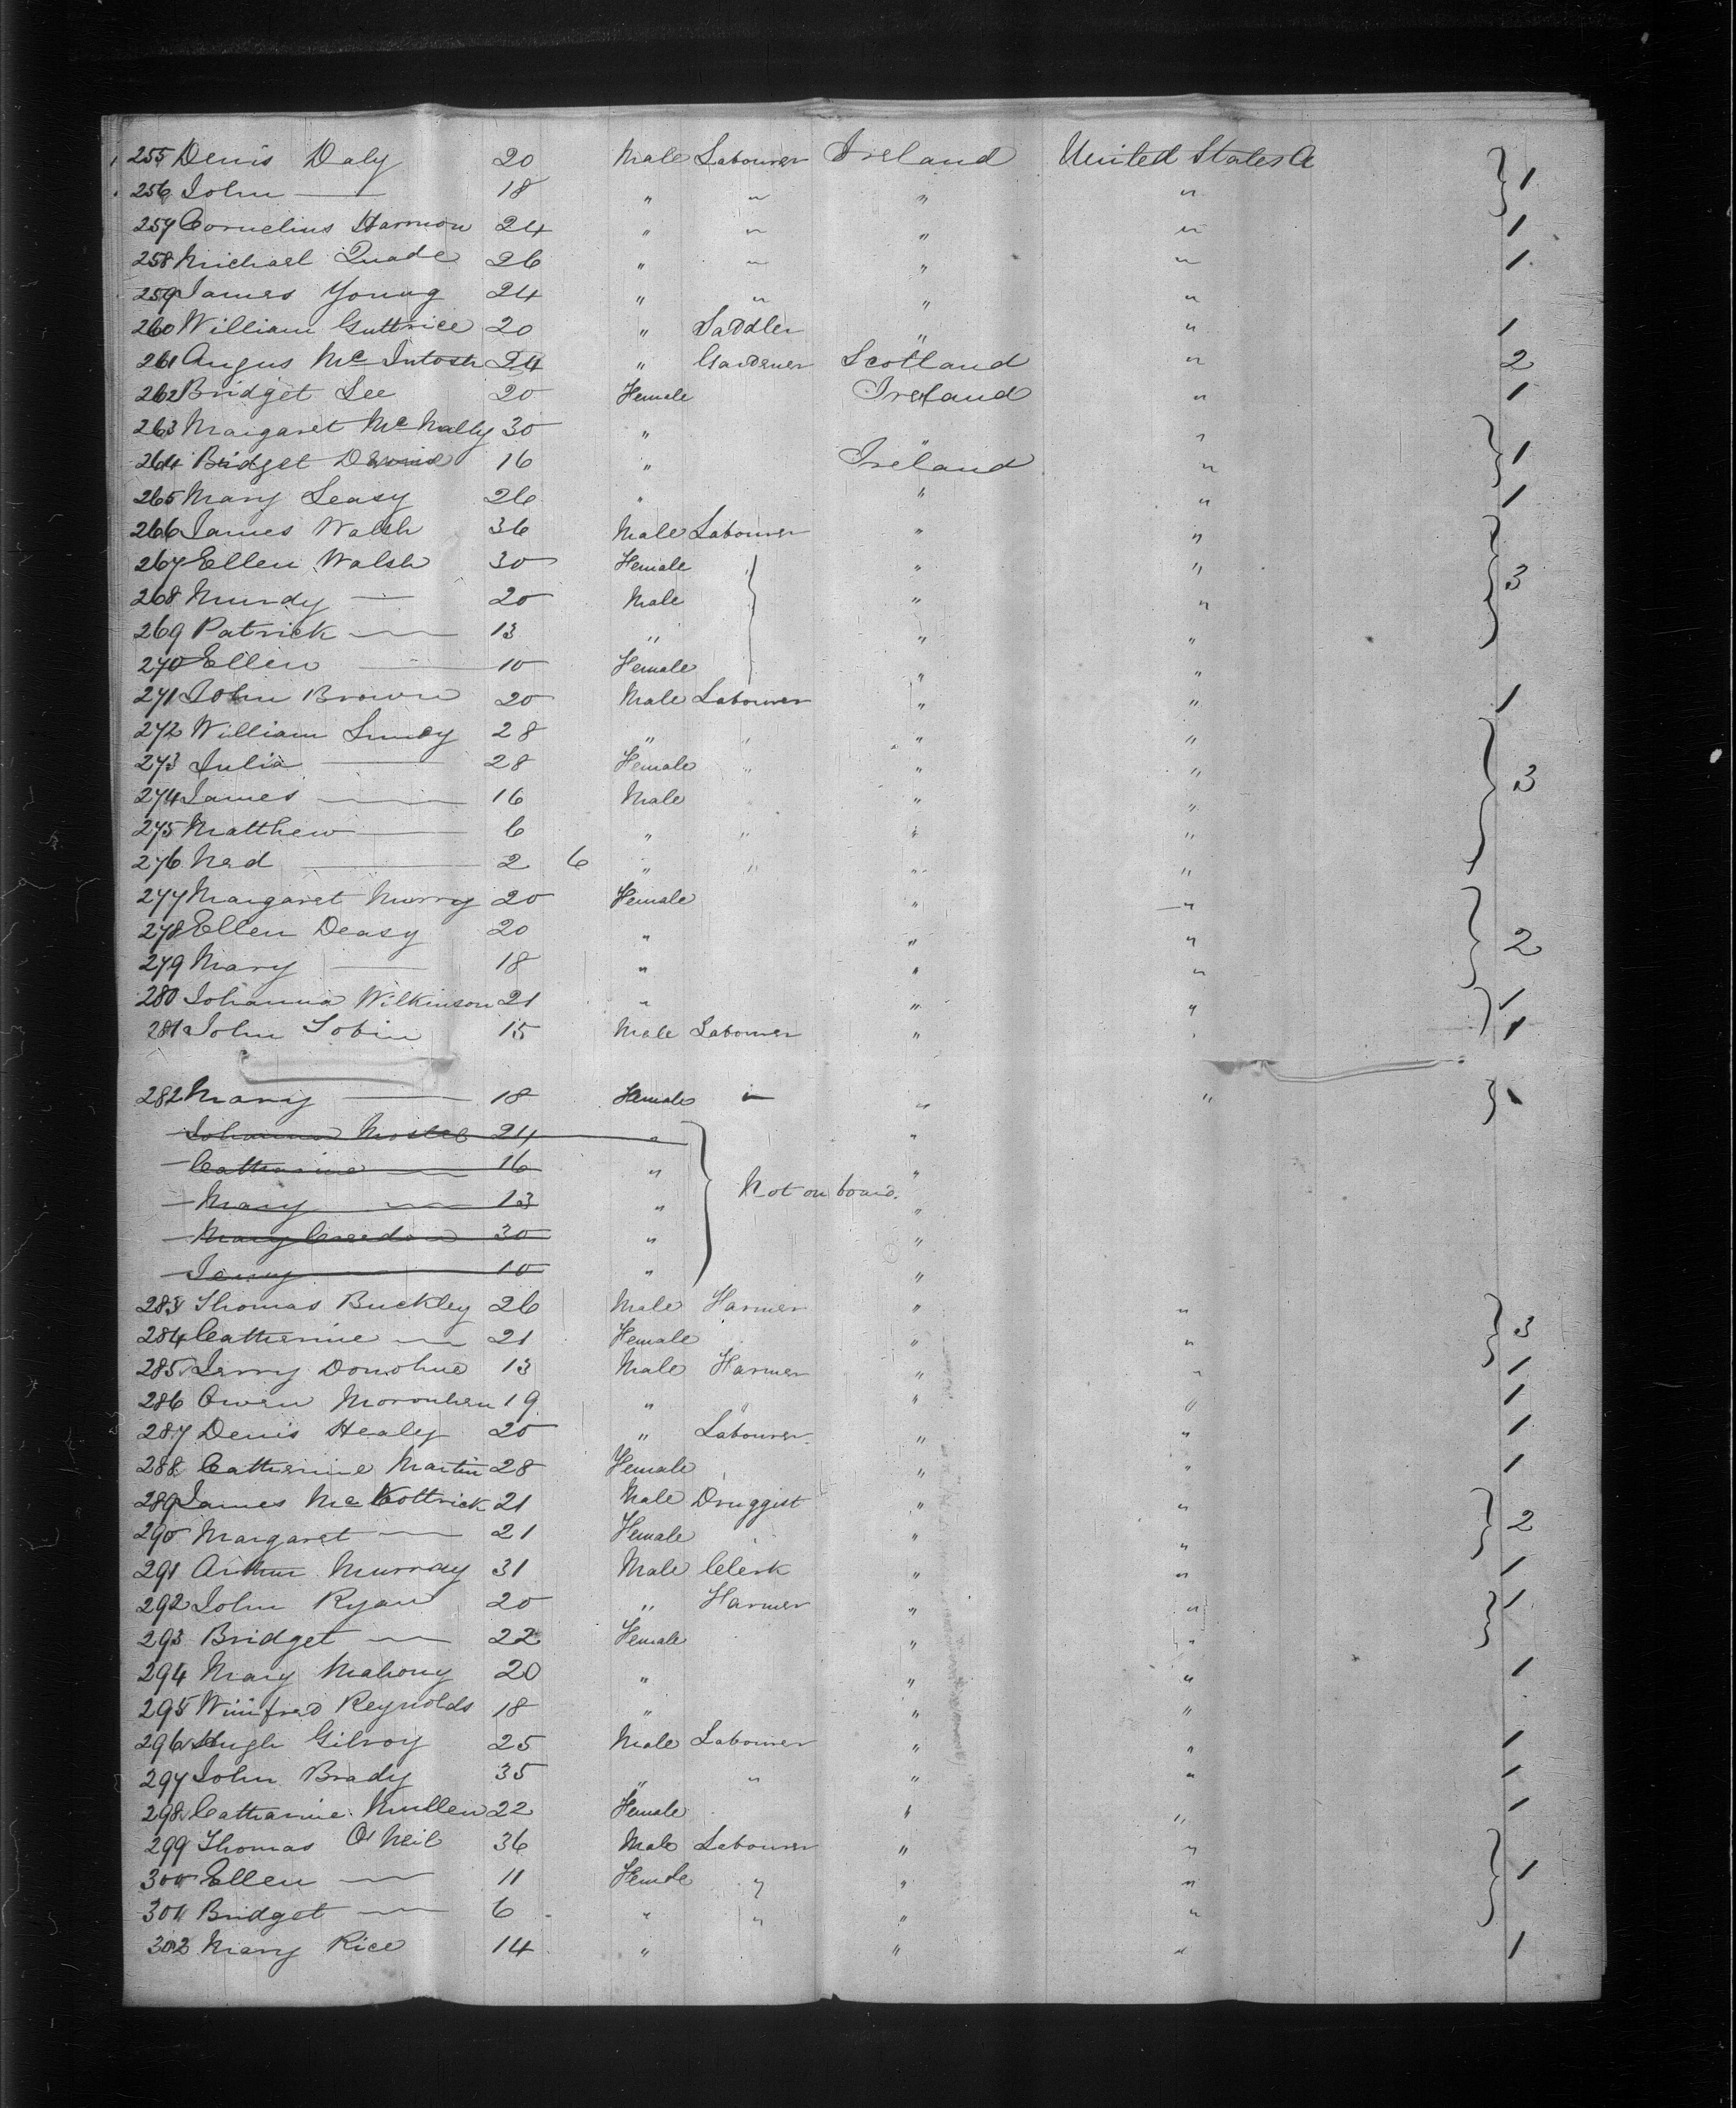 255 Denis Daly 20 Male Labourer Ireland United States A } 1
256 John —— 18 " " " "
257 Cornelius Harmon 24 " " " " 1
258 Michael Quade 26 " " " " 1
259 James Young 24 " " " "
260 William Guttrice 20 " Saddler " " 1
261 Angus McIntosh 24 " Gardener Scotland " 2
262 Bridget Lee 20 Female Ireland " 1
263 Margaret McNally 30 " " " } 1
264 Bridget 16 " Ireland "
265 Mary Leasy 26 " " " 1
266 James Walsh 36 Male Labourer " "
267 Ellen Walsh 30 Female " " } 3
268 Mundy —— 20 Male " "
269 Patrick —— 13 " " "
270 Ellen —— 10 Female " "
271 John Brown 20 Male Labourer " " 1
272 William 28 " " " "
273 Julia —— 28 Female " " " } 3
274 James —— 16 Male " "
275 Matthew —— 6 " " " "
276 Ned —— 2 6 " " " "
277 Margaret Murry 20 Female " "
278 Ellen Deasy 20 " " " } 2
279 Mary —— 18 " " "
280 Johanna Wilkinson 21 " " " } 1
281 John Tobin 15 Male Labourer " " 1
282 Mary —— 18 Female " " " } 1
Johanna 24 " "
Catharine —— 16 " "
Mary —— 13 " } Not on board. "
Mary Creedon 30 " "
Jenny —— 10 " "
283 Thomas Buckley 26 Male Farmer " "
284 Catherine —— 21 Female " " } 3
285 Jerry Donohue 13 Male Farmer " " 1
286 Owen 19 " " " " 1
287 Denis Healy 20 " Labourer " " 1
288 Catherine Martin 28 Female " " 1
289 James McKottrick 21 Male Druggist " "
290 Margaret —— 21 Female " " } 2
291 Arthur Murray 31 Male Clerk " " 1
292 John Ryan 20 " Farmer " " } 1
293 Bridget —— 22 Female " "
294 Mary Mahony 20 " " " 1
295 Winifred Reynolds 18 " " "
296 Hugh Gilroy 25 Male Labourer " " 1
297 John Brady 35 " " " " 1
298 Catharine Mullen 22 Female " " 1
299 Thomas O'Neil 36 Male Labourer " "
300 Ellen —— 11 Female " " " } 1
301 Bridget —— 6 " " " "
302 Mary Rice 14 " " " 1